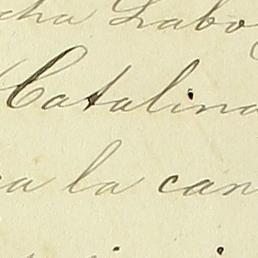 cha Labo
Catalina
a la can